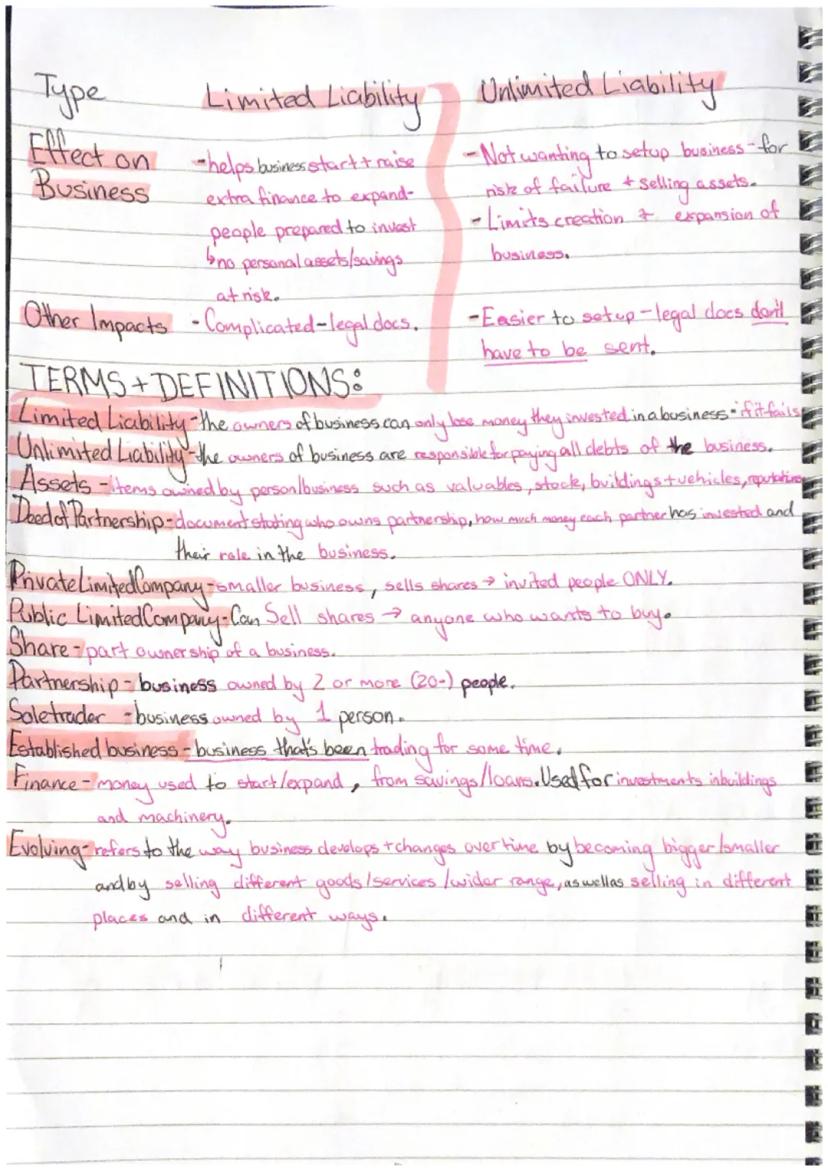 Type Limited Liability Unlimited Liability
Effect on Business
- helps business start + raise
extra finance to expand -
people prepared to invest
↳ no personal assets/savings
at risk.
- Not wanting to setup business - for
risk of failure + selling assets.
- Limits creation + expansion of
business.
Other Impacts - Complicated - legal docs.
- Easier to setup - legal docs don't
have to be sent.
TERMS + DEFINITIONS:
Limited Liability - the owners of business can only lose money they invested in a business - if it fails
Unlimited Liability - the owners of business are responsible for paying all debts of the business.
Assets - items owned by person/business such as valuables, stock, buildings + vehicles, reputation
Deed of Partnership - document stating who owns partnership, how much money each partner has invested and
their role in the business.
Private Limited Company - smaller business, sells shares → invited people ONLY.
Public Limited Company - Can Sell shares → anyone who wants to buy.
Share - part ownership of a business.
Partnership - business owned by 2 or more (20-) people.
Soletrader - business owned by 1 person.
Established business - business that's been trading for some time.
Finance - money used to start/expand, from savings/loans. Used for investments in buildings
and machinery.
Evolving - refers to the way business develops + changes over time by becoming bigger/smaller
and by selling different goods/services/wider range, as well as selling in different
places and in different ways.